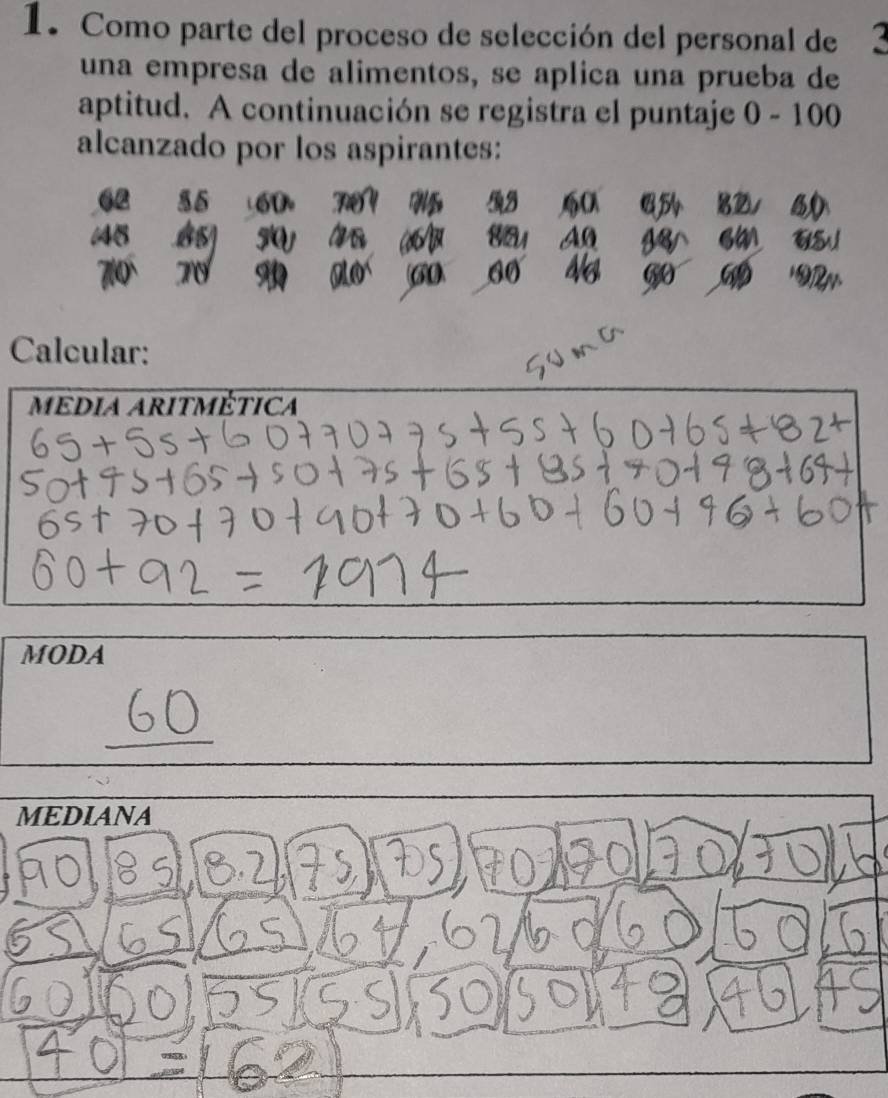 1. Como parte del proceso de selección del personal de 3
una empresa de alimentos, se aplica una prueba de
aptitud. A continuación se registra el puntaje 0 - 100
alcanzado por los aspirantes:
62 55 60 70 75 55 60 65 82 50
45 65 50 75 65 85 40 48 64 65
70 70 90 70 60 60 46 60 60 92
Calcular:
suma
MEDIA ARITMÉTICA
65+55+60+70+75+55+60+65+82+
50+45+65+50+75+65+85+40+48+64+
65+70+70+90+70+60+60+46+60+
60+92=1974
MODA
60
MEDIANA
90 85, 8.2, 75, 75, 70, 70, 70, 70, 6
65 65 65, 64, 62, 60 60, 60, 6
60 60, 55 55, 50 50, 48, 46, 45
40 = 62